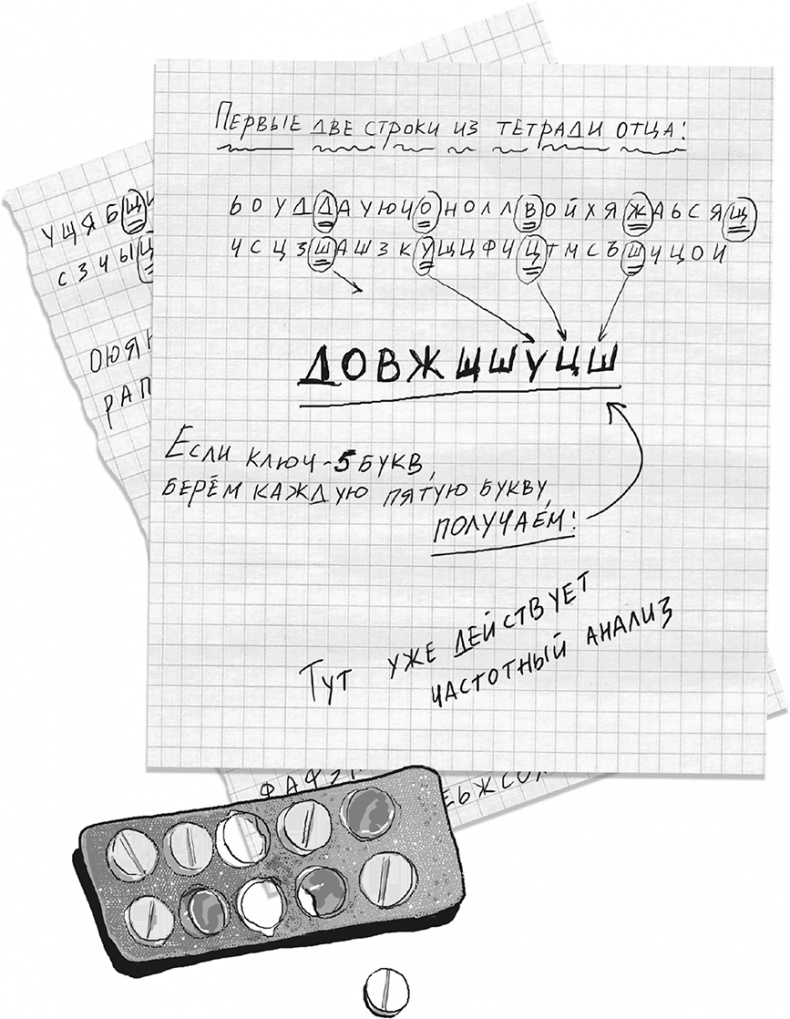 Первые две строки из тетради отца:
УЩЯБЩ
ЬОУДДАУЮЧОНОЛЛВОЙХЯЖАЬСЯЩ
СЗЧЫЦ
ЧСЦЗШАШЗКУЩЦФЧЦТМСЪШУЦОИ
ОЮЯ
РАП
ДОВЖЩШУЦШ
Если ключ - 5 букв,
берём каждую пятую букву,
получаем:
Тут уже действует
частотный анализ
ФАФЭ
ЕЬЖСО